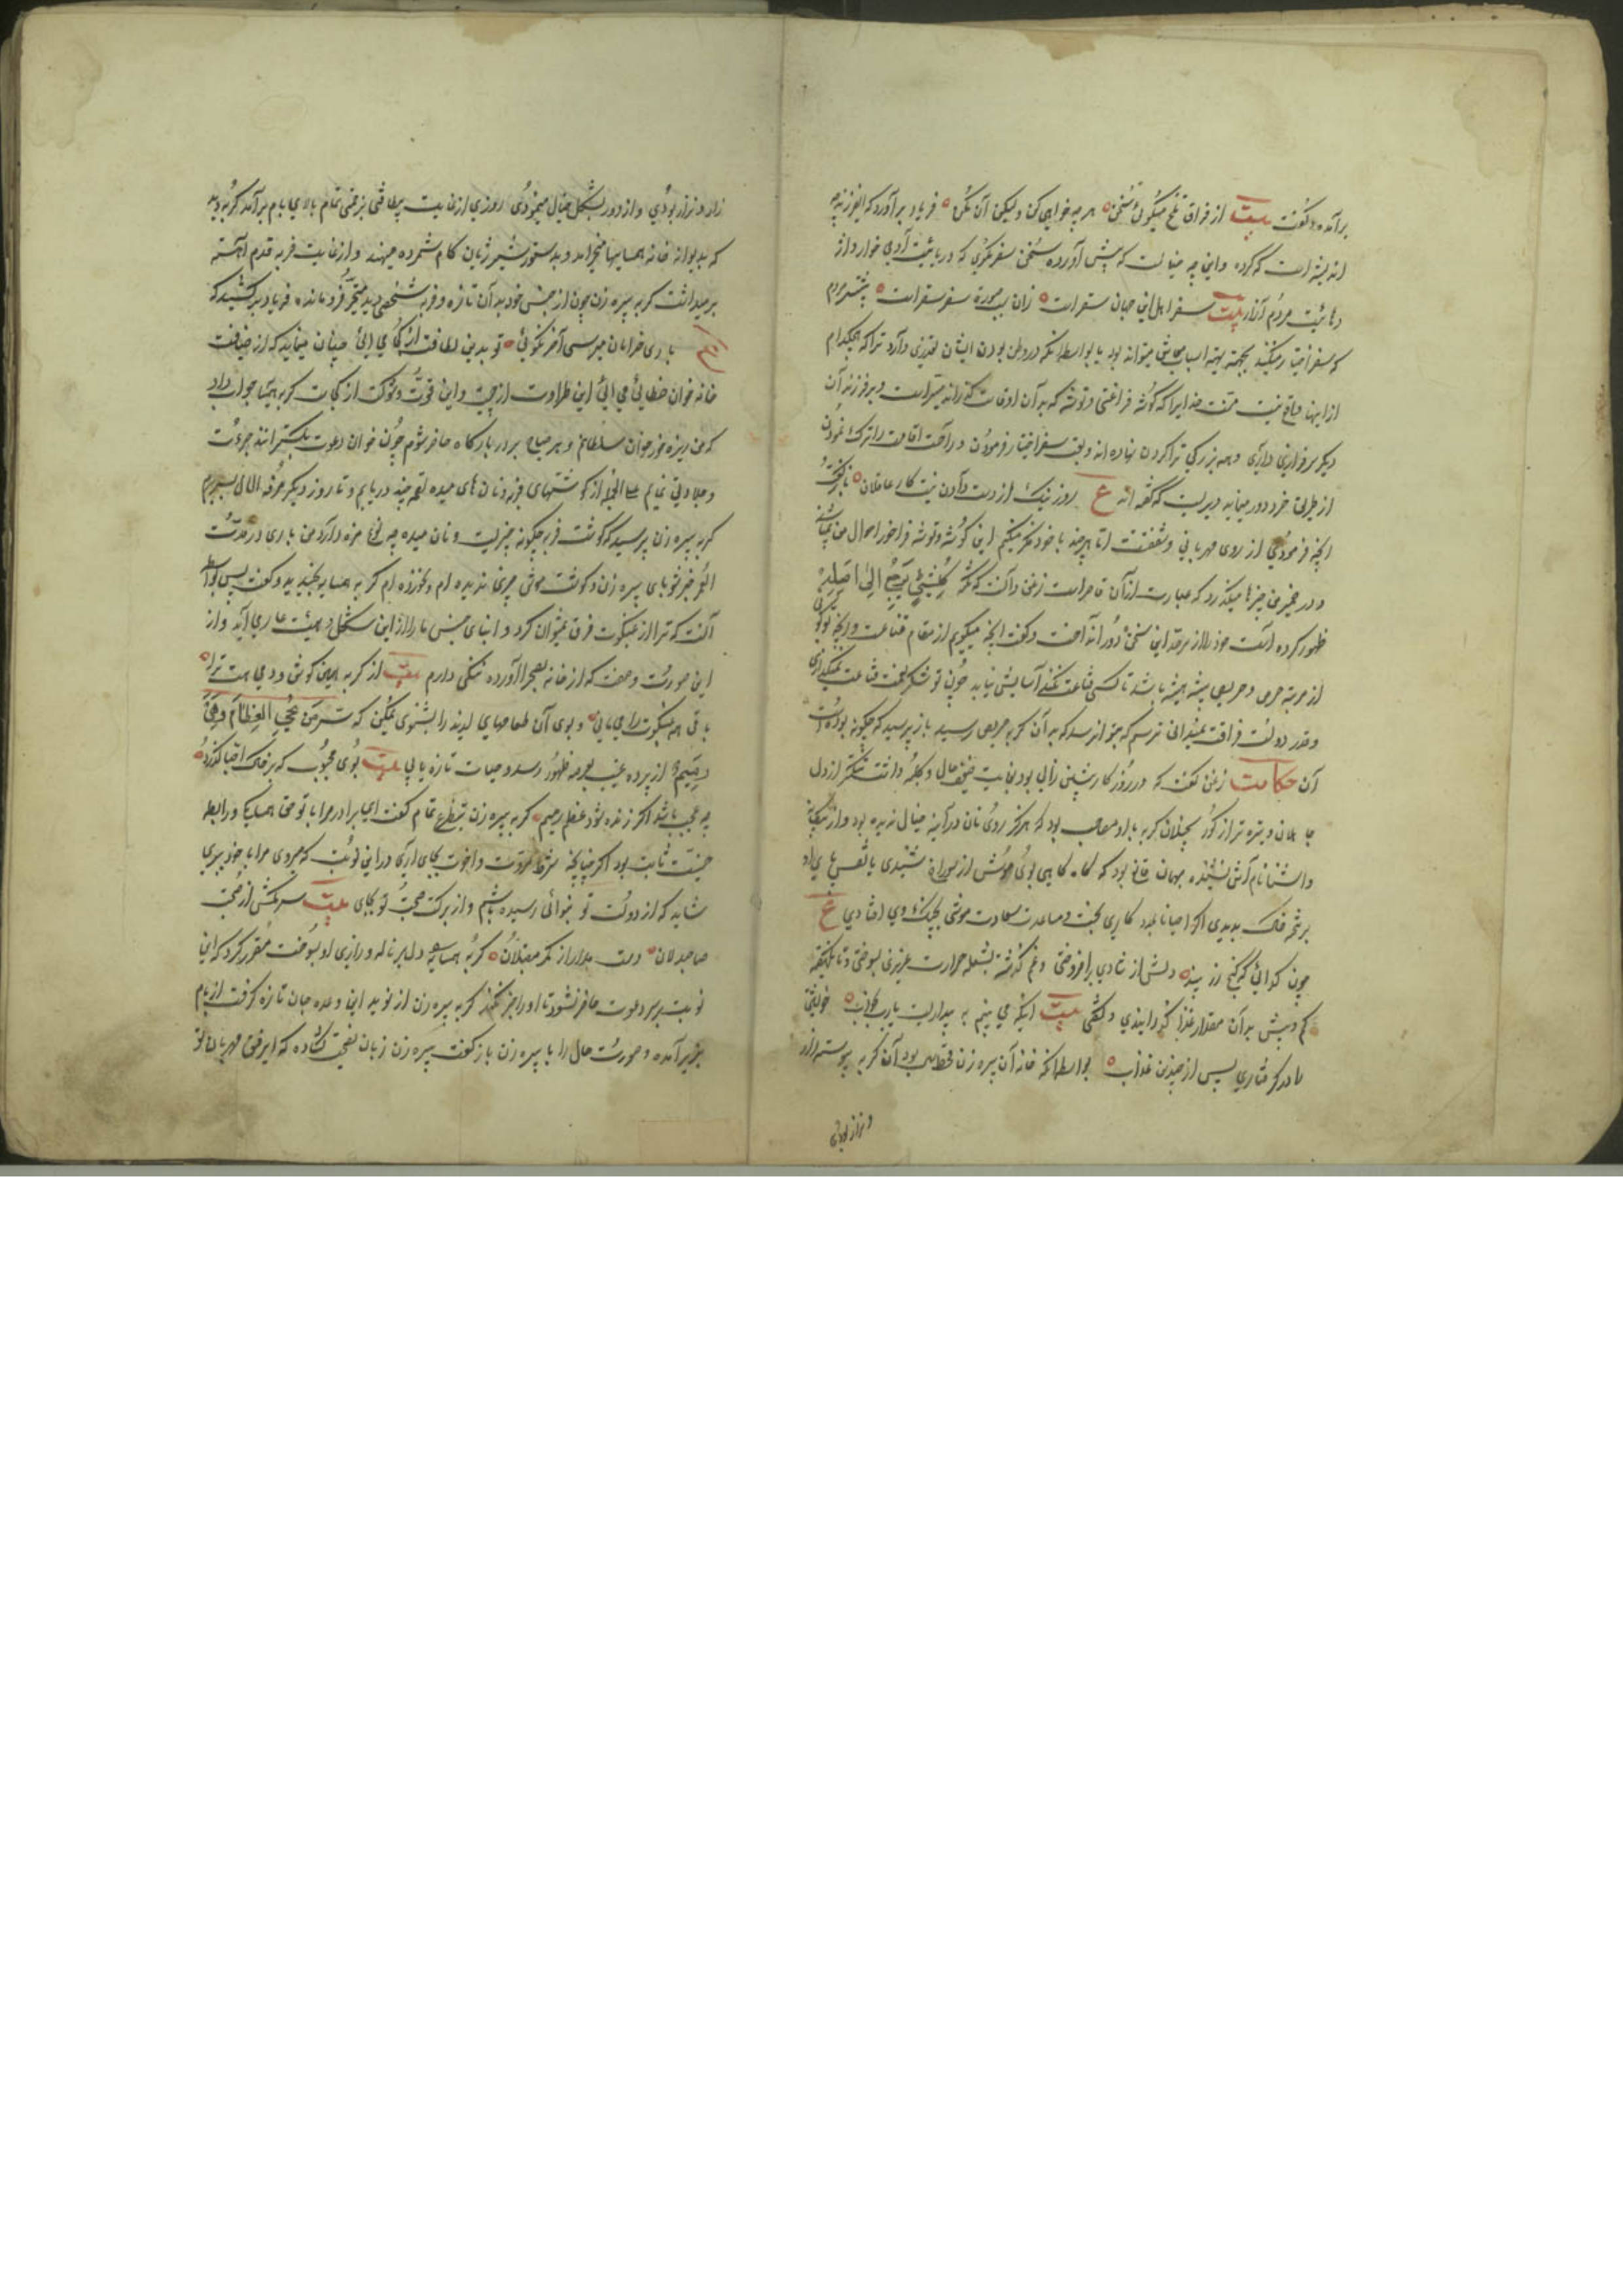 برآمد و گفت بیت از فراق تلخ میگوئی سخن هر چه خواهی کن ولیکن آن مکن فریاد برآورد که ای فرزند این چه
اندیشه است که کرده و این چه خیالست که پیش آورده سخن سفر مگوی که دریائیست آدمی خوار و اژ
دهائیست مردم آزار بیت سفر اهل این جهان سقر است زان بصورت سفر سقر است بیشتر مردم
که سفر اختیار میکنند بجهته تهیه اسباب معاش میتواند بود یا بواسطه آنکه در وطن بودن ایشان تعذری دارد و ترا که هیچکدام
از اینها واقع نیست منت خدایرا که گوشه فراغتی و توشه که بدان اوقات گذراند میسر است و بر فرزندان
دیگر سرفرازی داری و همه بزرگی ترا گردن نهاده اند و بی سفر اختیار فرمودن و راحت اقامت را ترک نمودن
از طریق خرد دور مینماید و دیریست که گفته اند ع روز نیک از دست دادن نیست کار عاقلان باز گفت
آنچه فرمودی از روی مهربانی و شفقت است اما هر چند با خود فکر میکنم این گوشه و توشه فراخور احوال من نمی باشد
و در ضمیر من چیزها میگذرد که عبارت از آن قاصر است زغن دانست که نکته کل شیئ یرجع الی اصله
ظهور کرده است خود را از سر حد این سخن دور انداخت و گفت آنچه میگویم از مقام قناعت و آنچه تو میگوئی
از مرتبه حرص و حریص همیشه محروم باشد تا کسی قناعت نکند آسایش نیابد چون تو شکر نعمت قناعت نمیگذاری
و قدر دولت فراغت نمیدانی ترسم که بتو آن رسد که بدان گربه حریص رسید باز پرسید که چگونه بوده است
آن حکایت زغن گفت که در روزگار پیشین زالی بود بغایت ضعیف حال و کلبه داشت تنگتر از دل
جاهلان و تیره تر از گور بخیلان گربه با او مصاحب بود که هرگز روی نان در آینه خیال ندیده بود و از بیگانه
و آشنا نام آش نشنیده بهمان قانع بود که گاه گاهی بوی موش از سوراخ شنیدی یا نقش پای او
بر تخته خاک بدیدی اگر احیانا بمدد کاری بخت و مساعدت سعادت موشی بچنگ وی افتادی ع
چون گدائی که گنج زر بیند دلش از شادی برافروختی و غم گذشته بشعله حرارت غریزی بسوختی و تا یکهفته
کم و بیش بدان مقدار غذا گذرانیدی و گفتی بیت اینکه می بینم به بیداریست یارب یا بخواب خویشتن
را در کامکاری پس از چندین عذاب بواسطه آنکه خانه آن پیره زن قحط سال بود آن گربه پیوسته زار
و نزار بودی
زار و نزار بودی و از دور بشکل خیال مینمودی روزی از غایت بیطاقتی بزحمتی تمام بالای بام برآمد گربه دید
که بدیوار خانه همسایها میخرامد و بدستور شیر ژیان گام شمرده مینهد و از غایت فربهی قدم آهسته
برمیداشت گربه پیره زن چون از جنس خود بدان تازه و فربه شخصی دید متحیر فرو مانده فریاد برکشید که
ع باری خرامان میرسی آخر نگوئی تو بدین لطافت از کجا می آئی چنان مینماید که از ضیافت
خانه خوان خطائی می آئی این طراوت از چیست و این قوت و شوکت از کجاست گربه همسایه جواب داد
که من ریزه خور خوان سلطانم و هر صباح بر در بارگاه حاضر شوم چون خوان دعوت بگسترانند جرءت
و جلادتی نمایم علی الجمله از گوشتهای فربه و نان های میده لقمه چند دریابم و تا روز دیگر مرفه الحال بسر برم
گربه پیره زن پرسید که گوشت فربه چگونه چیزیست و نان میده چه نوع مزه دارد من باری در مدت
العمر جز شوربای پیره زن و گوشت موش چیزی ندیده ام و نخورده ام گربه همسایه بخندید و گفت پس بواسطه
آنست که ترا از عنکبوت فرق نمیتوان کرد و ابنای جنس ما را از این شکل و هیئت عار می آید و از
این صورت و صفت که از خانه بصحرا آورده ننگی دارم بیت از گربه همین گوش و دمی هست ترا
باقی همه عنکبوت را می مانی و بوی آن طعامهای لذیذ را بشنوی یمکن که سر من یحی العظام و هی
رمیم از پرده غیب بعرصه ظهور رسد و حیات تازه یابی بیت بوی محبوب که بر خاک احبا گذرد
چه عجب باشد اگر زنده شود عظم رمیم گربه پیره زن بتضرع تمام گفت ای برادر مرا با تو حق همسایگی و رابطه
جنسیت ثابت بود اگر چنانچه شرط مروت و اخوت بجای آری در این نوبت که میروی مرا با خود ببری
شاید که از دولت تو بنوائی رسیده باشم و از برکت صحبت تو بجای بیت سر مکش از صحبت
صاحبدلان دست مدار از کمر مقبلان گربه همسایه را دل بر ناله و زاری او بسوخت مقرر کرد که این
نوبت بر سر دعوت حاضر نشود تا او را خبر نکند گربه پیره زن از نوید این وعده جان تازه گرفت از بام
بزیر آمده و صورت حال را با پیره زن باز گفت پیره زن زبان نصیحت گشاده که ای رفیق مهربان تو